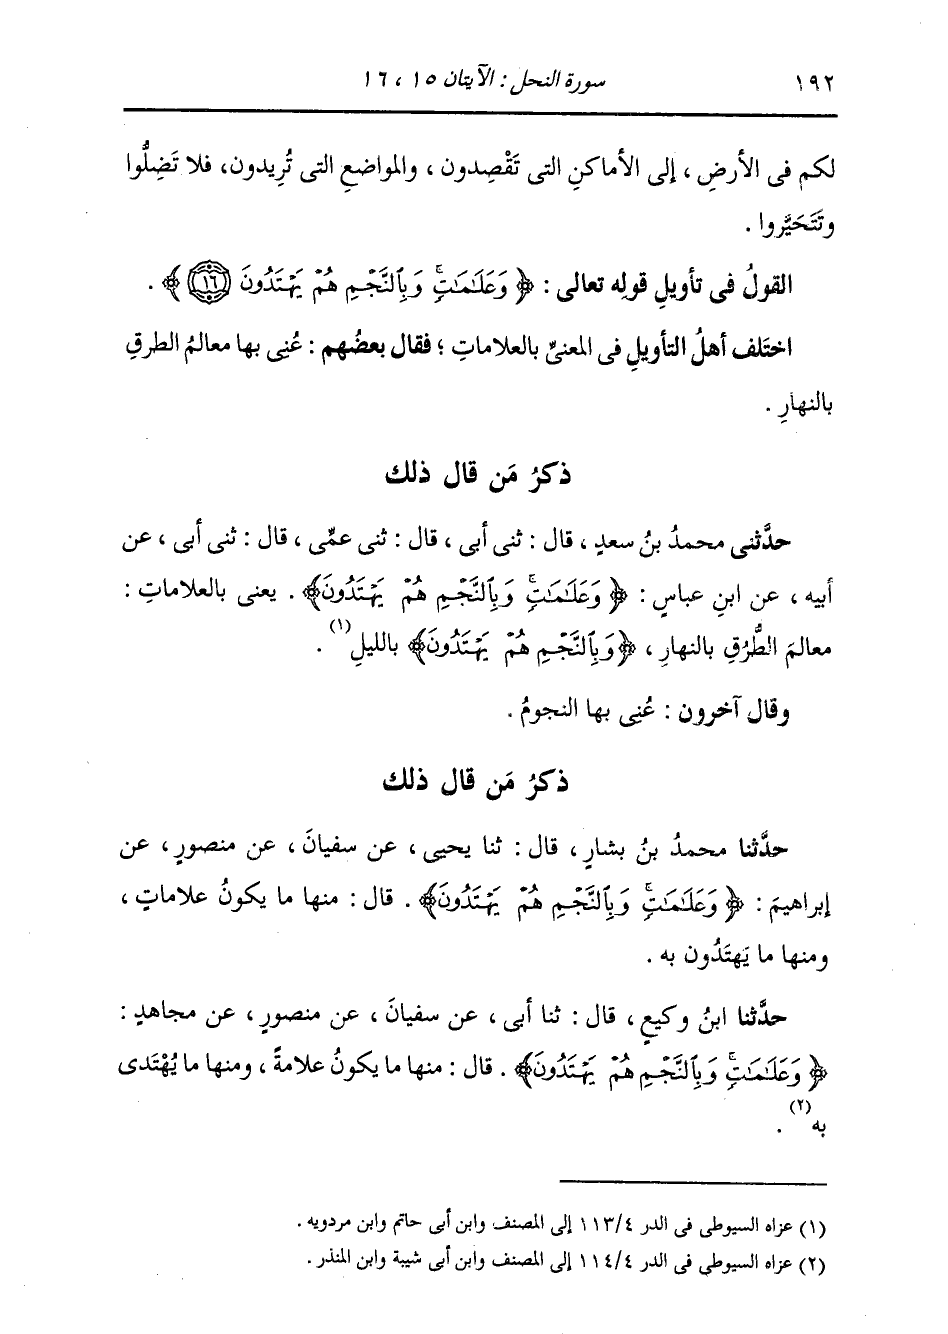 ١٩٢ سورة النحل : الآيتان ١٥ ، ١٦
لكم فى الأرضِ ، إلى الأماكنِ التى تَقْصِدون ، والمواضعِ التى تُرِيدون، فلا تَضِلُّوا
وتَتَحَيَّروا .
القولُ فى تأويلِ قولِه تعالى : ﴿ وَعَلَـٰمَـٰتٍۚ وَبِٱلنَّجْمِ هُمْ يَهْتَدُونَ ١٦ ﴾ .
اختَلف أهلُ التأويلِ فى المعنىِّ بالعلاماتِ ؛ فقال بعضُهم : عُنِى بها معالمُ الطرقِ
بالنهارِ .
ذكرُ مَن قال ذلك
حدَّثنى محمدُ بنُ سعدٍ ، قال : ثنى أبى ، قال : ثنى عمِّى ، قال : ثنى أبى ، عن
أبيه ، عن ابنِ عباسٍ : ﴿ وَعَلَـٰمَـٰتٍۚ وَبِٱلنَّجْمِ هُمْ يَهْتَدُونَ﴾ . يعنى بالعلاماتِ :
معالمَ الطُّرُقِ بالنهارِ ، ﴿وَبِٱلنَّجْمِ هُمْ يَهْتَدُونَ﴾ بالليلِ(١) .
وقال آخرون : عُنِى بها النجومُ .
ذكرُ مَن قال ذلك
حدَّثنا محمدُ بنُ بشارٍ ، قال : ثنا يحيى ، عن سفيانَ ، عن منصورٍ ، عن
إبراهيمَ : ﴿ وَعَلَـٰمَـٰتٍۚ وَبِٱلنَّجْمِ هُمْ يَهْتَدُونَ﴾ . قال : منها ما يكونُ علاماتٍ ،
ومنها ما يَهتَدُون به .
حدَّثنا ابنُ وكيعٍ ، قال : ثنا أبى ، عن سفيانَ ، عن منصورٍ ، عن مجاهدٍ :
﴿ وَعَلَـٰمَـٰتٍۚ وَبِٱلنَّجْمِ هُمْ يَهْتَدُونَ﴾ . قال : منها ما يكونُ علامةً ، ومنها ما يُهْتَدى
به(٢) .
(١) عزاه السيوطى فى الدر ١١٣/٤ إلى المصنف وابن أبى حاتم وابن مردويه .
(٢) عزاه السيوطى فى الدر ١١٤/٤ إلى المصنف وابن أبى شيبة وابن المنذر .